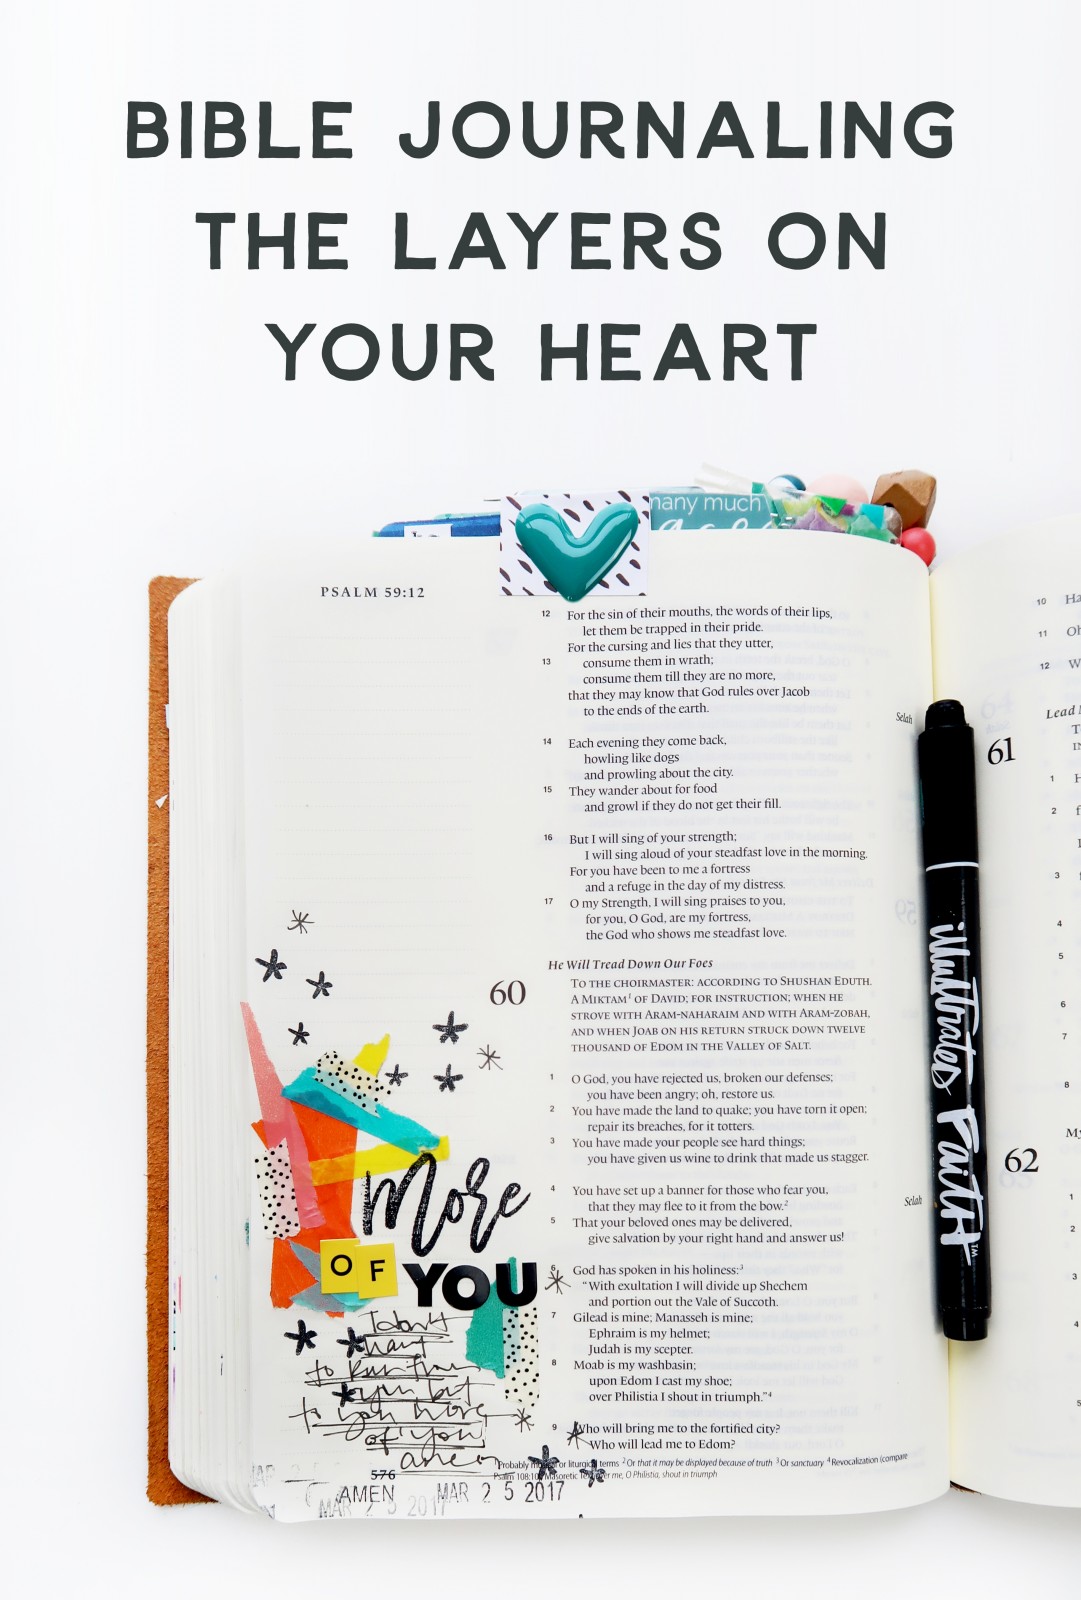 BIBLE JOURNALING
THE LAYERS ON
YOUR HEART
many much
PSALM 59:12
12 For the sin of their mouths, the words of their lips,
let them be trapped in their pride.
For the cursing and lies that they utter,
13 consume them in wrath;
consume them till they are no more,
that they may know that God rules over Jacob
to the ends of the earth. Selah
14 Each evening they come back,
howling like dogs
and prowling about the city.
15 They wander about for food
and growl if they do not get their fill.
16 But I will sing of your strength;
I will sing aloud of your steadfast love in the morning.
For you have been to me a fortress
and a refuge in the day of my distress.
17 O my Strength, I will sing praises to you,
for you, O God, are my fortress,
the God who shows me steadfast love.
He Will Tread Down Our Foes
60 TO THE CHOIRMASTER: ACCORDING TO SHUSHAN EDUTH.
A MIKTAM¹ OF DAVID; FOR INSTRUCTION; WHEN HE
STROVE WITH ARAM-NAHARAIM AND WITH ARAM-ZOBAH,
AND WHEN JOAB ON HIS RETURN STRUCK DOWN TWELVE
THOUSAND OF EDOM IN THE VALLEY OF SALT.
1 O God, you have rejected us, broken our defenses;
you have been angry; oh, restore us.
2 You have made the land to quake; you have torn it open;
repair its breaches, for it totters.
3 You have made your people see hard things;
you have given us wine to drink that made us stagger.
4 You have set up a banner for those who fear you,
that they may flee to it from the bow.² Selah
5 That your beloved ones may be delivered,
give salvation by your right hand and answer us!
6 God has spoken in his holiness:³
"With exultation I will divide up Shechem
and portion out the Vale of Succoth.
7 Gilead is mine; Manasseh is mine;
Ephraim is my helmet;
Judah is my scepter.
8 Moab is my washbasin;
upon Edom I cast my shoe;
over Philistia I shout in triumph."⁴
9 Who will bring me to the fortified city?
Who will lead me to Edom?
¹Probably or liturgical terms ²Or that it may be displayed because of truth ³Or sanctuary ⁴Revocalization (compare
Psalm 108:10 Masoretic Text me, O Philistia, shout in triumph
More
OF
YOU
I don't
want
to run from
you but
to you more
of you
amen
576
AMEN MAR 25 2017
MAR 25 2017
illustrated Faith™
10 Ha
11 Oh
12 W
Lead
61
1 H
2 f
3
4
5
6
7
8
62 My
1
2
3
4
5